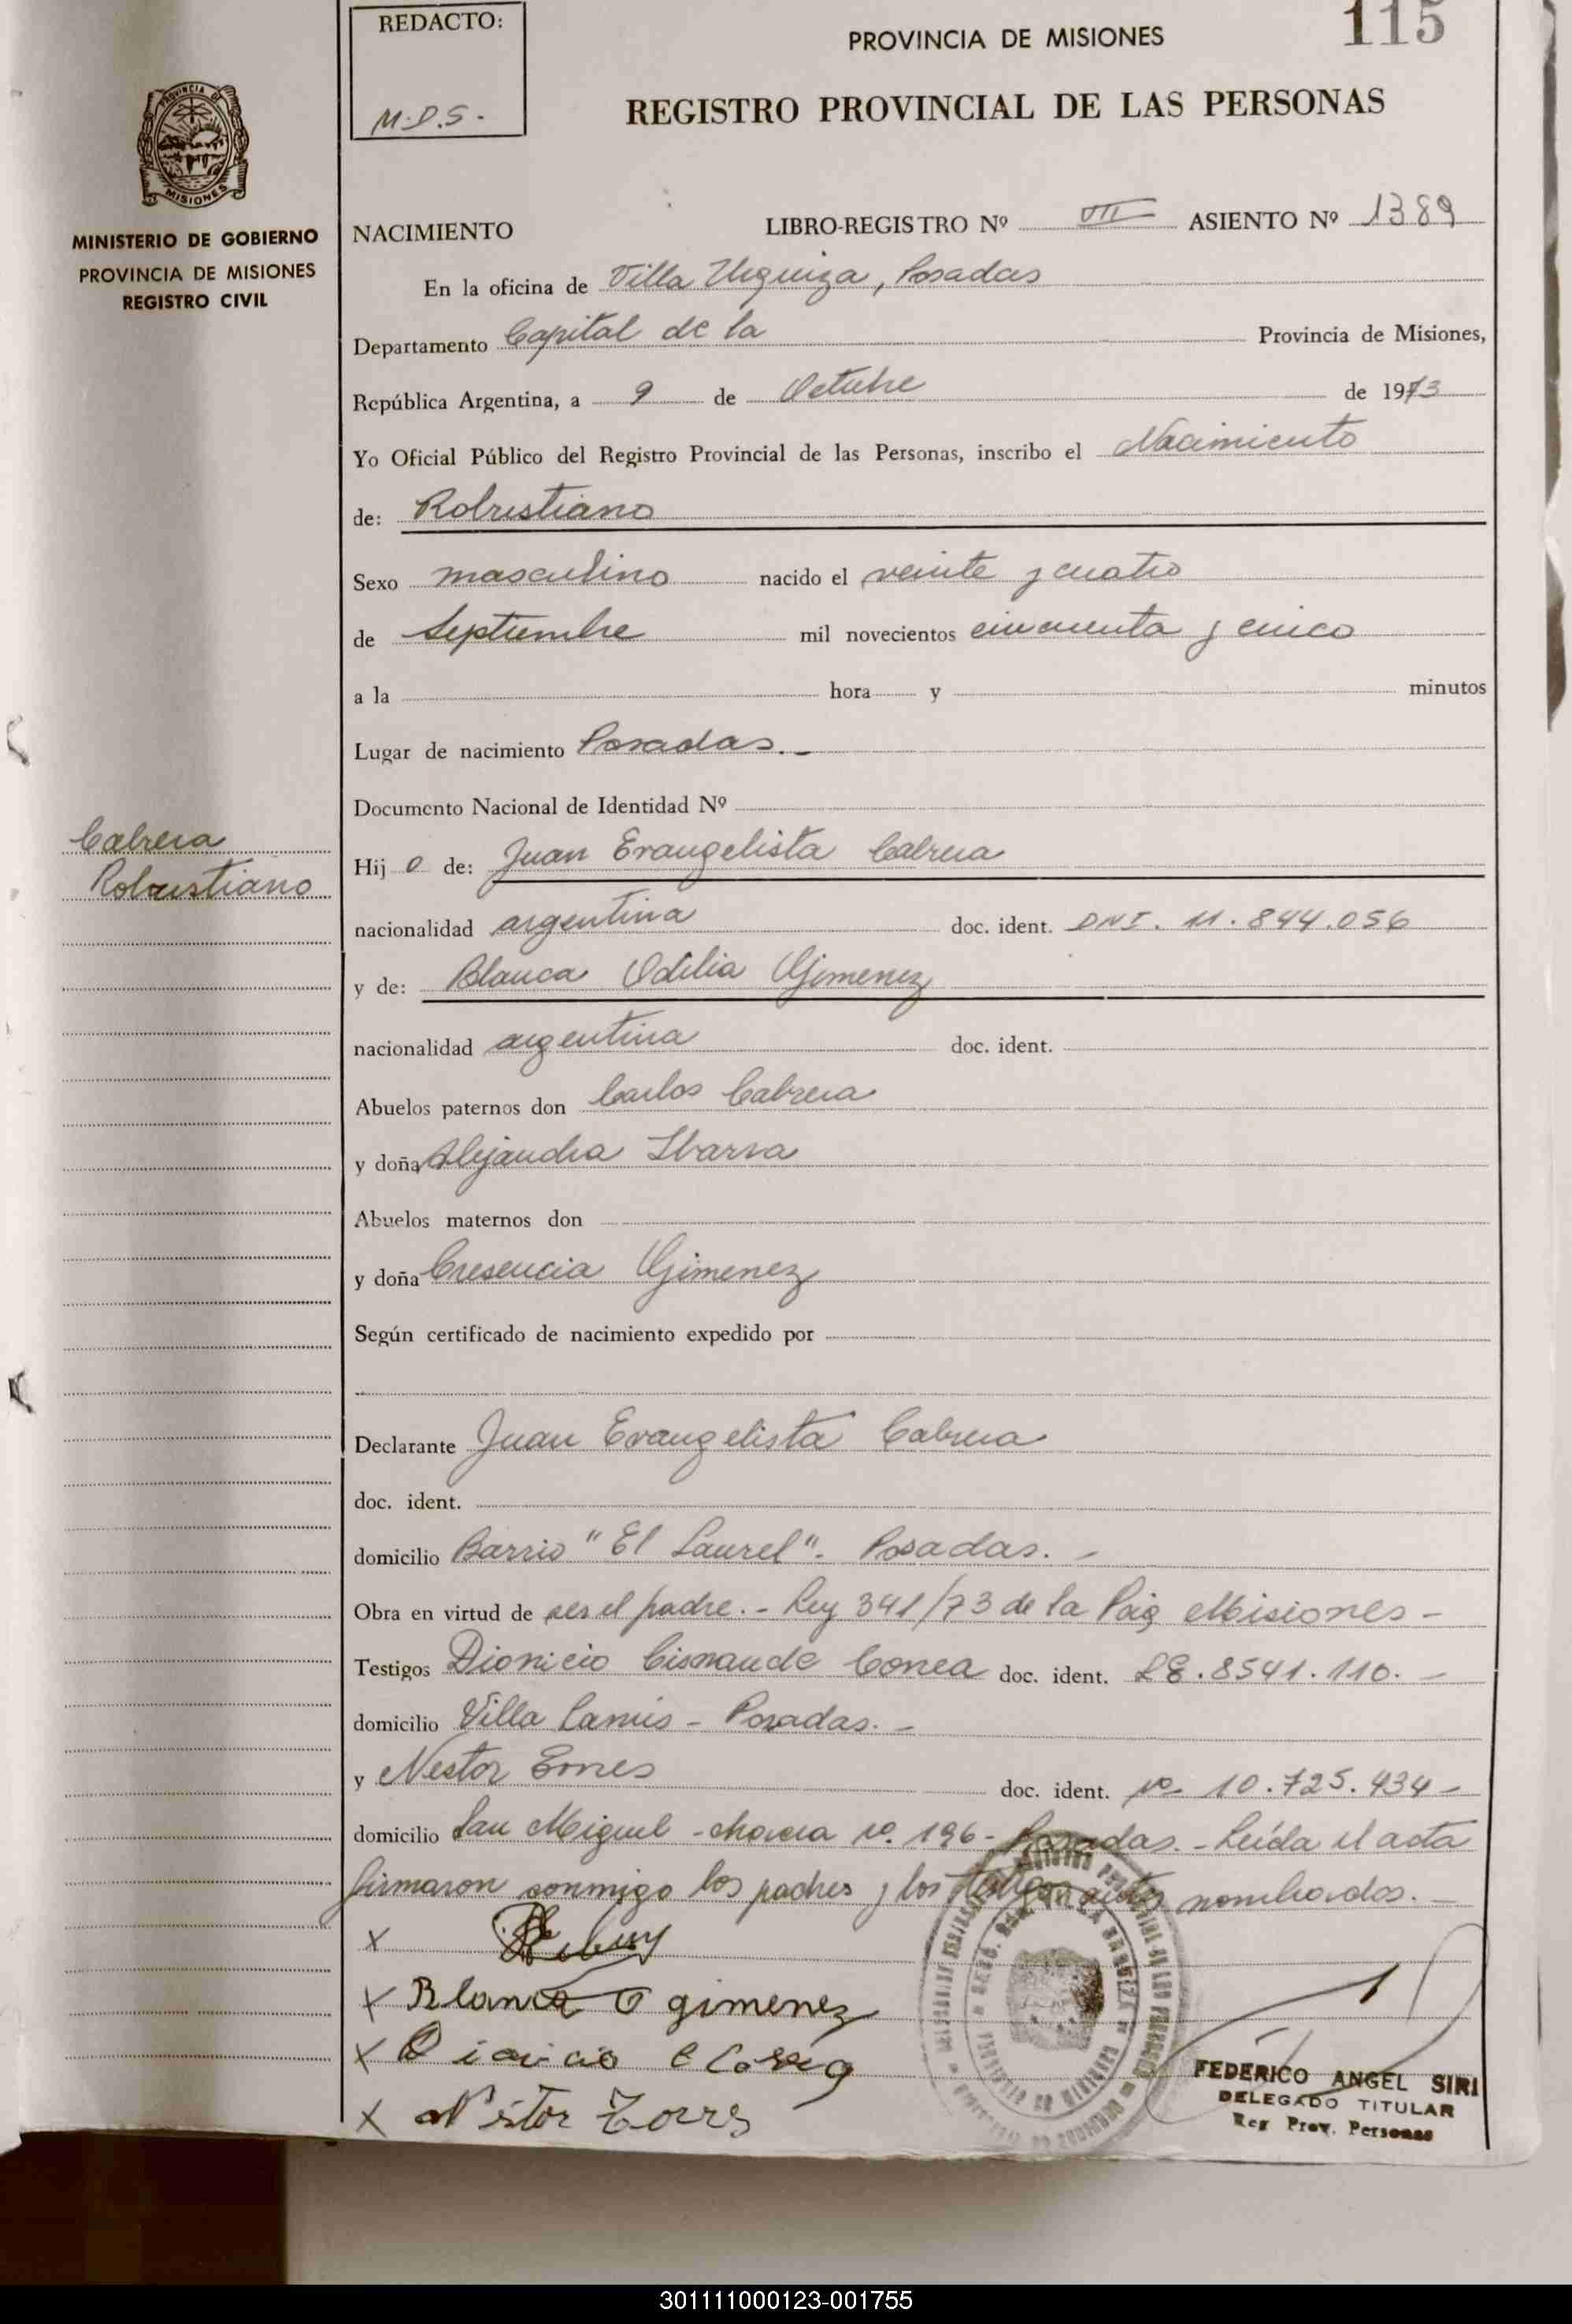 REDACTO:
M.D.S.-
PROVINCIA DE MISIONES
115
REGISTRO PROVINCIAL DE LAS PERSONAS
PROVINCIA DE
MISIONES
MINISTERIO DE GOBIERNO
PROVINCIA DE MISIONES
REGISTRO CIVIL
NACIMIENTO LIBRO-REGISTRO Nº VII ASIENTO Nº 1389
En la oficina de Villa Urquiza, Posadas
Departamento Capital de la Provincia de Misiones,
República Argentina, a 9 de Octubre de 1973
Yo Oficial Público del Registro Provincial de las Personas, inscribo el Nacimiento
de: Robustiano
Sexo masculino nacido el veinte y cuatro
de Septiembre mil novecientos cincuenta y cinco
a la hora y minutos
Lugar de nacimiento Posadas.-
Documento Nacional de Identidad Nº
Cabrera
Robustiano
Hij o de: Juan Evangelista Cabrera
nacionalidad argentina doc. ident. DNI. 11.844.056
y de: Blanca Odilia Gimenez
nacionalidad argentina doc. ident.
Abuelos paternos don Carlos Cabrera
y doña Alejandra Ibarra
Abuelos maternos don
y doña Cresencia Gimenez
Según certificado de nacimiento expedido por
Declarante Juan Evangelista Cabrera
doc. ident.
domicilio Barrio "El Laurel". Posadas.-
Obra en virtud de ser el padre.- Ley 341/73 de la Misiones-
Testigos Dionicio doc. ident. LE.8541.110.-
domicilio Villa Lanús - Posadas.-
y Nestor doc. ident. nº 10.725.434-
domicilio San Miguel - chacra nº. 196- Posadas.- Leída el acta
firmaron conmigo los padres y los testigos antes nombrados.-
x
x Blanca O gimenez
x
x Nestor Torres
FEDERICO ANGEL SIRI
DELEGADO TITULAR
Reg Prov. Personas
301111000123-001755